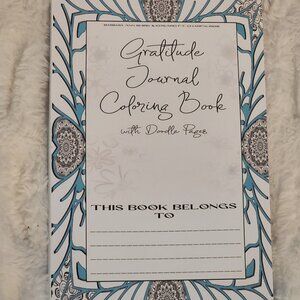 Gratitude
Journal
Coloring Book
with Doodle Pages
THIS BOOK BELONGS
TO